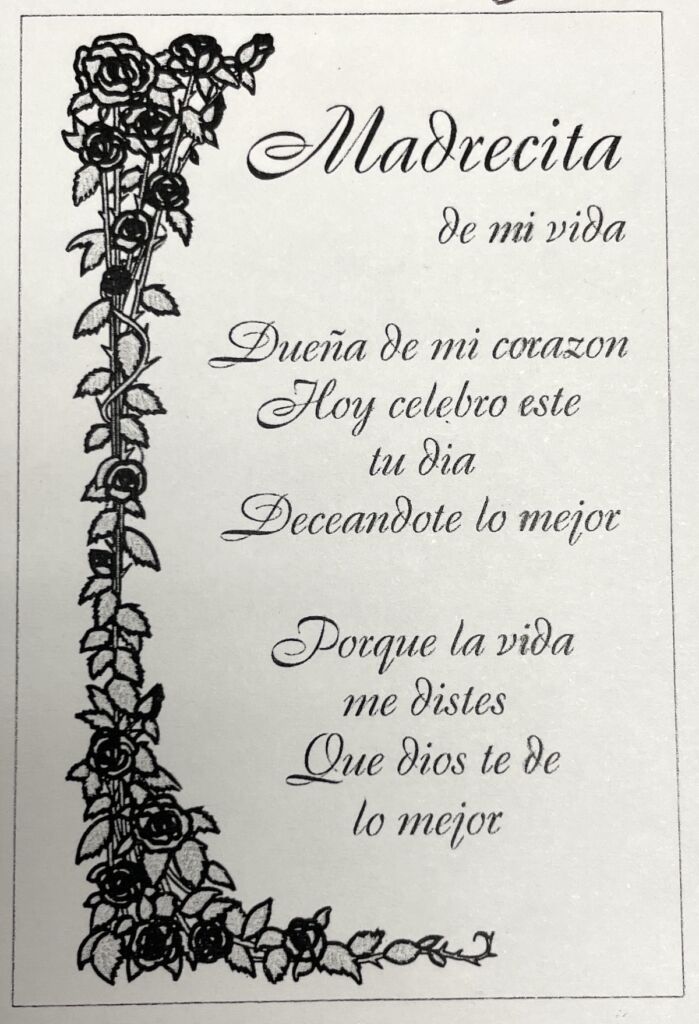 Madrecita
de mi vida
Dueña de mi corazon
Hoy celebro este
tu dia
Deceandote lo mejor
Porque la vida
me distes
Que dios te de
lo mejor